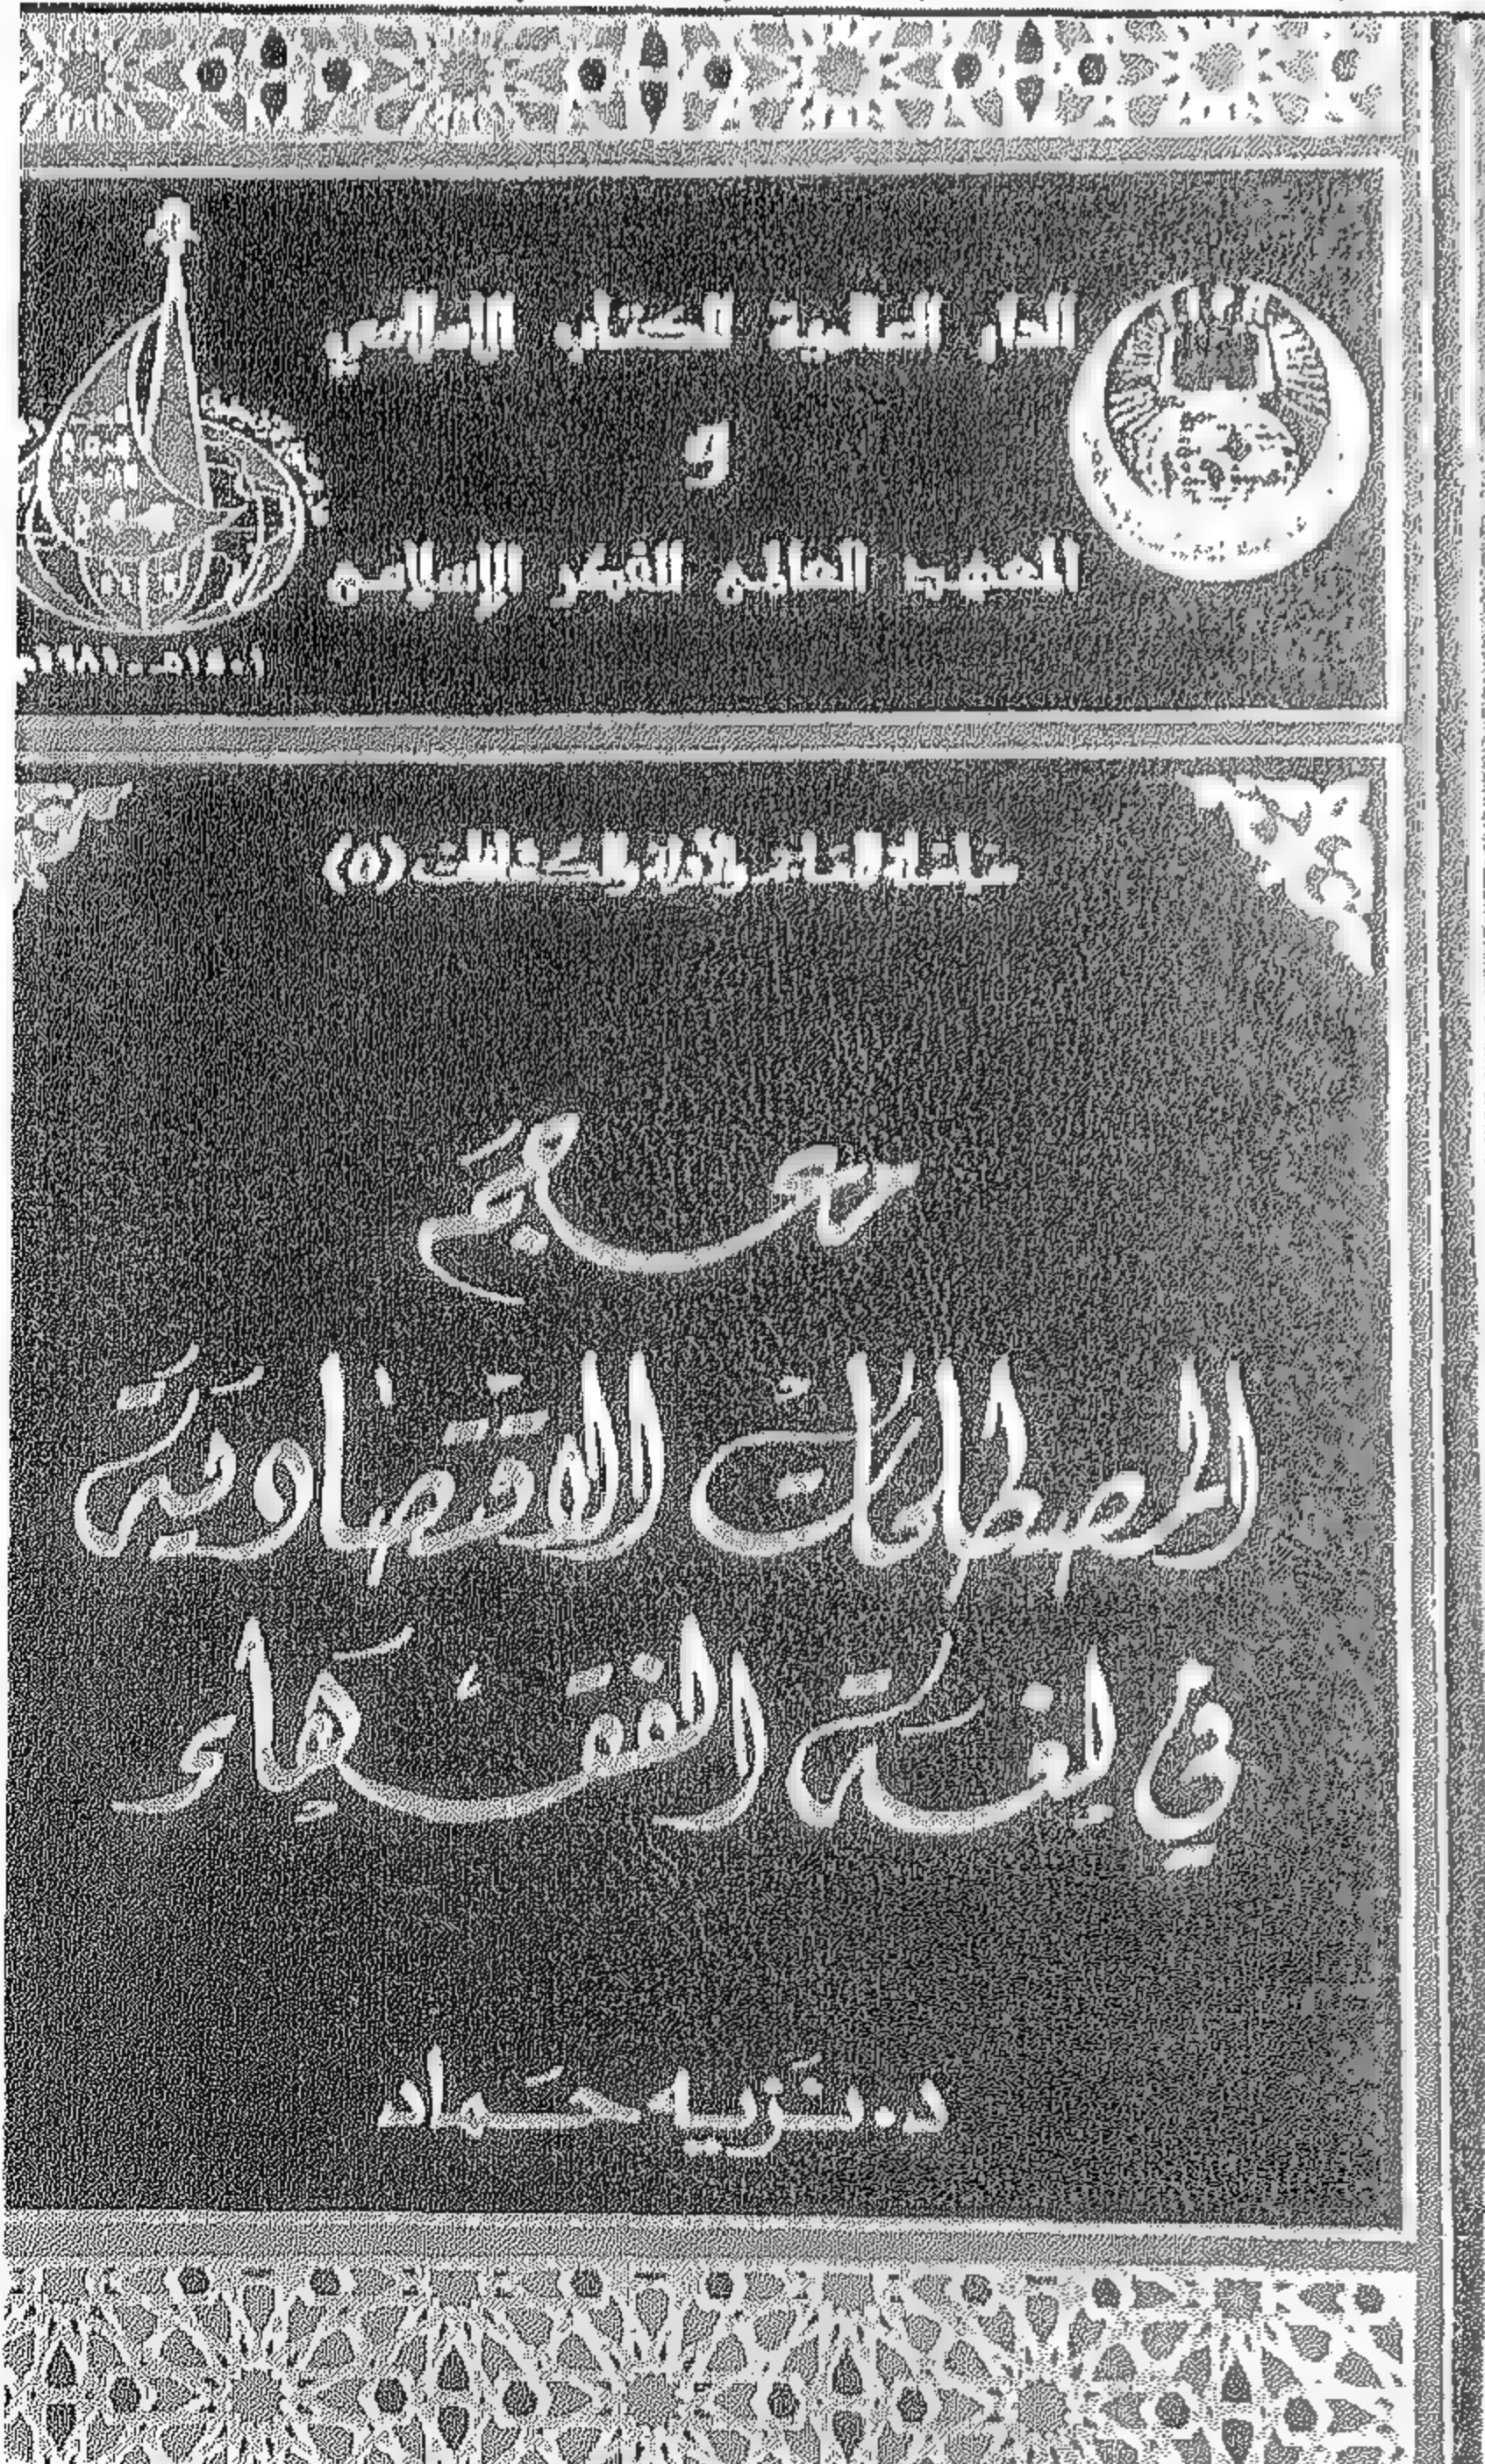 الدار العالمية للكتاب الإسلامي
و
المعهد العالمي للفكر الإسلامي
١٤٠١هـ - ١٩٨١م
سلسلة المعاجم والأدلة والكشافات (٥)
معجم
المصطلحات الاقتصادية
في لغة الفقهاء
د. نزيه حماد